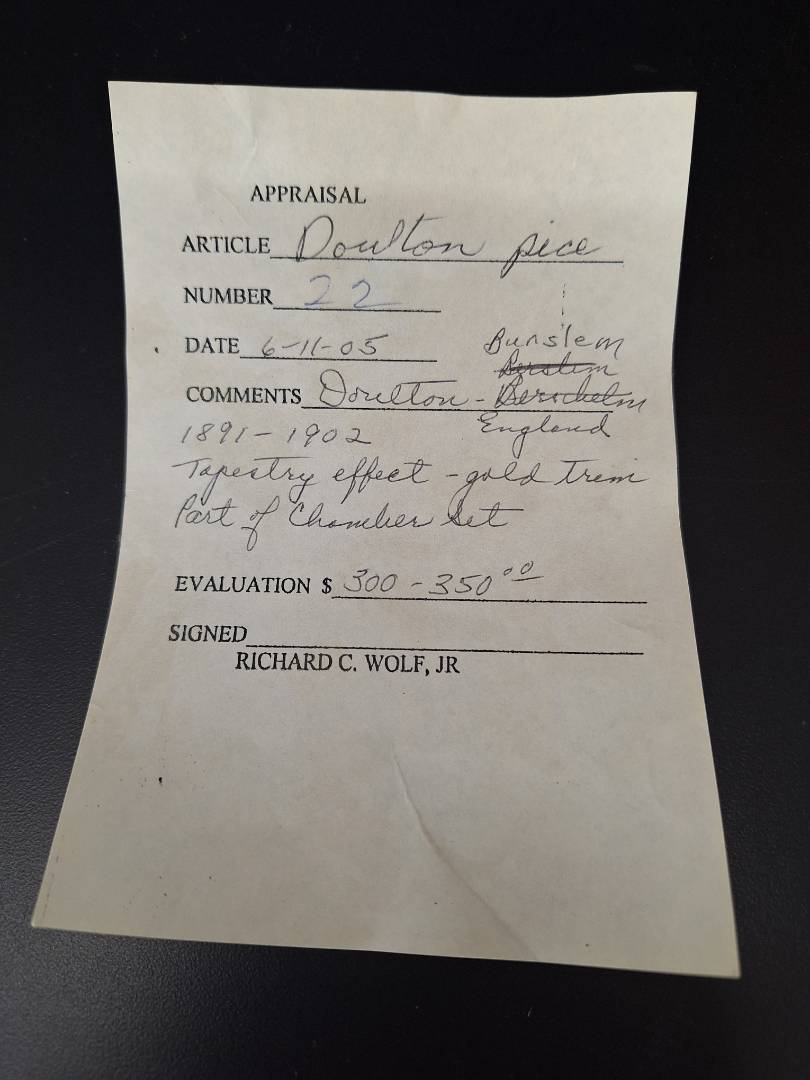 APPRAISAL
ARTICLE Doulton pice
NUMBER 22
DATE 6-11-05
Bunslem
COMMENTS Doulton -
1891-1902 England
Tapestry effect - gold trim
Part of Chamber set
EVALUATION $ 300 - 350⁰⁰
SIGNED
RICHARD C. WOLF, JR